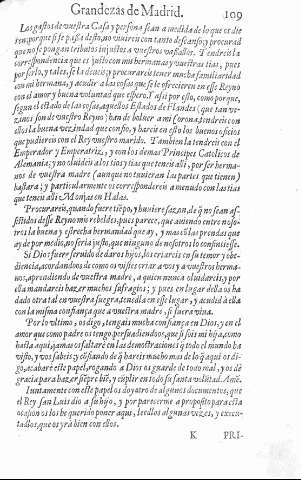 Grandezas de Madrid. 109
Los gastos de vuestra Casa y persona sean a medida de lo que os die
ren; porque si se passa desto, no viuireis con tanto descanso; y procurad
que no se pongan tributos injustos a vuestros vassallos. Tendreis la
correspondencia que es justo con mis hermanas y vuestras tias, pues
por serlo, y tales, se les deue; y procurareis tener mucha familiaridad
con mi hermana, y acudir a las cosas que se le ofrecieren en esse Reyno
con el amor y buena voluntad que espero. Y assi por esto, como porque,
segun el estado de las cosas, aquellos Estados de Flandes (que tan ve-
zinos son de vuestro Reyno) han de boluer a mi Corona, tendreis con
ellos la buena vezindad que confio, y hareis en esto los buenos oficios
que pudiereis con el Rey vuestro marido. Tambien la tendreis con el
Emperador y Emperatriz, y con los demas Principes Catolicos de
Alemania; y no oluideis a los tios y tias que teneis alli, por ser herma-
nos de vuestra madre (aunque no tuuieran las partes que tienen)
bastara; y particularmente os correspondereis a menudo con las tias
que teneis alli Monjas en Halas.
Procurareis, quando fuere tiẽpo, y huuiere sazon, de q̃ no sean as-
sistidos desse Reyno mis rebeldes, pues parece, que auiendo entre noso-
tros la buena y estrecha hermandad que ay, y mas cõ las prendas que
ay de por medio, no seria justo, que ninguno de nosotros lo consintiesse.
Si Dios fuere seruido de daros hijos, los criareis en su temor y obe-
diencia, acordandoos de como os vuisteis criar a vos y a vuestros herma-
nos, aprendiendo de vuestra madre, a quien nunca oluidareis; y por
ella mandareis hazer muchos sufragios; y pues en lugar della os ha
dado otra tal en vuestra suegra, tenedla en esse lugar, y acudid a ella
con la misma confiança que a vuestra madre, si fuera viua.
Por lo vltimo, os digo, tengais mucha confiança en Dios, y en el
amor que como padre os tengo persuadiendoos, que si fois mi hija, como
hasta aqui, jamas os faltarè en las demostraciones q̃ todo el mundo ha
visto, y vos sabeis; y cõfiando de q̃ hareis mucho mas de lo q̃ aqui os di-
go, acabarè este papel, rogando a Dios os guarde de todo mal, y os dè
gracia para hazer siẽpre biẽ, y cũplir en todo su santa volũtad. Amẽ.
Iuntamente con este papel os doy atro de algunos documentos, que
el Rey san Luis dio a su hijo, y por parecerme a proposito para esta
ocasion os los he querido poner aqui, leedlos algunas vezes, y execu-
tadlos, que os yrà bien con ellos.
K PRI-